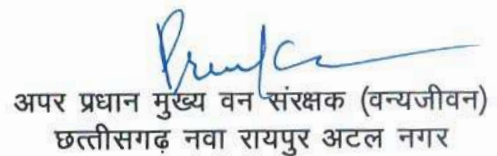 अपर प्रधान मुख्य वन संरक्षक (वन्यजीवन)
छत्तीसगढ़ नवा रायपुर अटल नगर